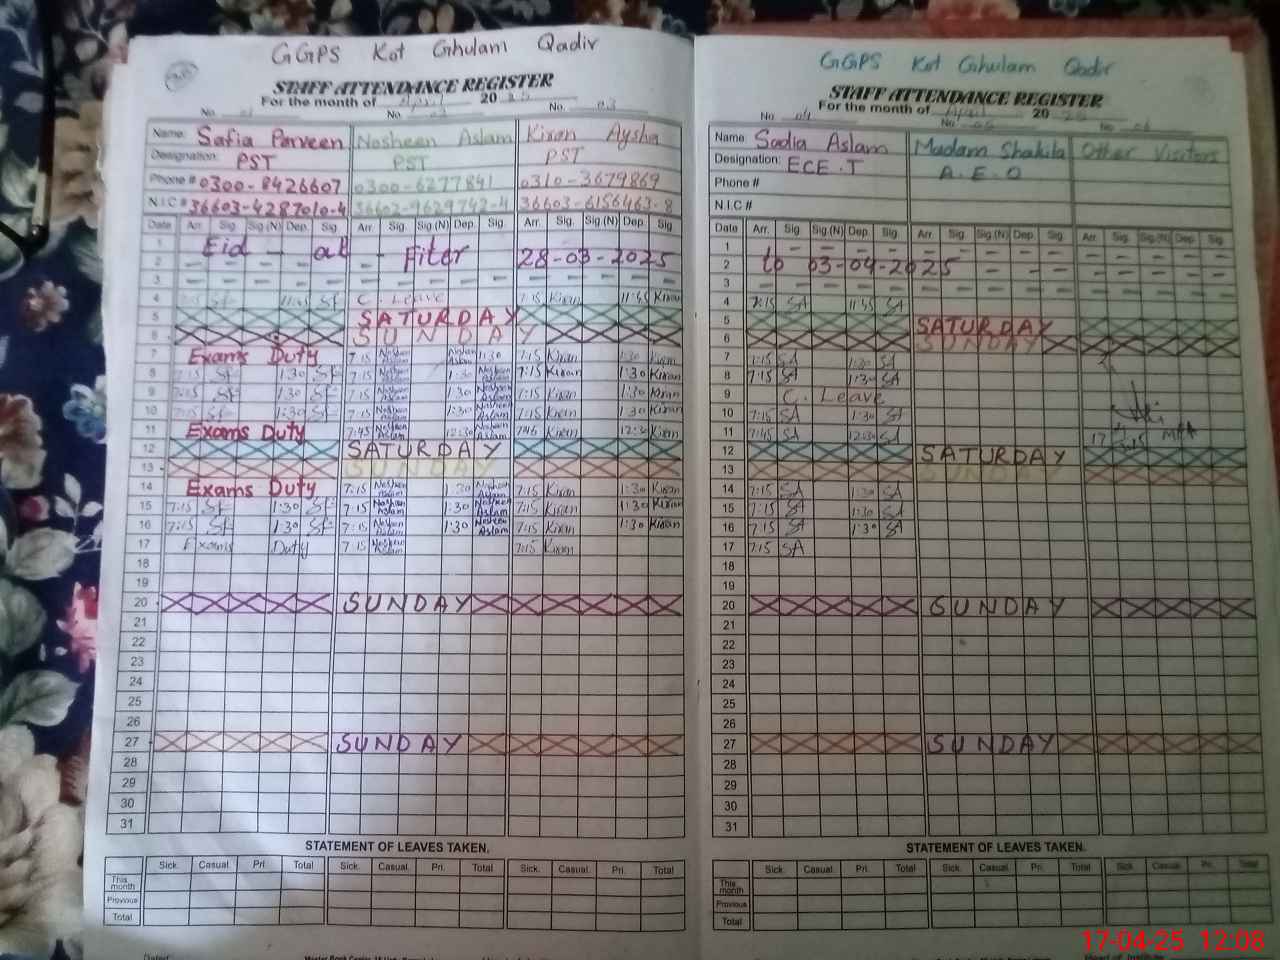 GGPS Kot Ghulam Qadir
STAFF ATTENDANCE REGISTER
For the month of April 2025
No. 01 No 02 No. 03
Name: Safia Parveen Nosheen Aslam Kiran Aysha
Designation: PST PST PST
Phone # 0300-8426607 0300-6277841 0310-3679869
N.I.C # 36603-4287010-4 36602-9629742-4 36603-6156463-8
Date Arr. Sig. Sig(N) Dep. Sig. Arr. Sig. Sig.(N) Dep. Sig. Arr. Sig. Sig(N) Dep. Sig.
1 Eid - al - Fiter 28-03-2025
2 - - -
3 - - -
4 7:15 SF 11:45 SF C. Leave 7:15 Kiran 11:45 Kiran
5 SATURDAY
6 SUNDAY
7 Exams Duty 7:15 Nosheen Aslam Nosheen Aslam 1:30 7:15 Kiran 1:30 Kiran
8 7:15 SF 1:30 SF 7:15 Nosheen Aslam 1:30 Nosheen Aslam 7:15 Kiran 1:30 Kiran
9 7:15 SF 1:30 SF 7:15 Nosheen Aslam 1:30 Nosheen Aslam 7:15 Kiran 1:30 Kiran
10 7:15 SF 1:30 SF 7:15 Nosheen Aslam 1:30 Nosheen Aslam 7:15 Kiran 1:30 Kiran
11 Exams Duty 7:45 Nosheen Aslam 12:30 Nosheen Aslam 7:45 Kiran 12:30 Kiran
12 SATURDAY
13 SUNDAY
14 Exams Duty 7:15 Nosheen Aslam 1:30 Nosheen Aslam 7:15 Kiran 1:30 Kiran
15 7:15 SF 1:30 SF 7:15 Nosheen Aslam 1:30 Nosheen Aslam 7:15 Kiran 1:30 Kiran
16 7:15 SF 1:30 SF 7:15 Nosheen Aslam 1:30 Nosheen Aslam 7:15 Kiran 1:30 Kiran
17 Exams Duty 7:15 Nosheen Aslam 7:15 Kiran
18
19
20 SUNDAY
21
22
23
24
25
26
27 SUNDAY
28
29
30
31
STATEMENT OF LEAVES TAKEN.
Sick. Casual. Pri. Total Sick. Casual. Pri. Total Sick. Casual. Pri. Total
This month
Previous
Total
GGPS Kot Ghulam Qadir
STAFF ATTENDANCE REGISTER
For the month of April 2025
No. 04 No. 05 No.
Name Sadia Aslam Madam Shakila Other Visitors
Designation: ECE.T A.E.O
Phone #
N.I.C #
Date Arr. Sig. Sig.(N) Dep. Sig. Arr. Sig. Sig.(N) Dep. Sig. Arr. Sig. Sig.(N) Dep. Sig.
1 - - -
2 to 03-04-2025
3 - - -
4 7:15 SA 11:45 SA
5 SATURDAY
6 SUNDAY
7 7:15 SA 1:30 SA
8 7:15 SA 1:30 SA
9 C. Leave
10 7:15 SA 1:30 SA
11 7:45 SA 12:30 SA MEA
12 SATURDAY
13 SUNDAY
14 7:15 SA 1:30 SA
15 7:15 SA 1:30 SA
16 7:15 SA 1:30 SA
17 7:15 SA
18
19
20 SUNDAY
21
22
23
24
25
26
27 SUNDAY
28
29
30
31
STATEMENT OF LEAVES TAKEN.
Sick. Casual. Pri. Total Sick. Casual. Pri. Total Sick. Casual. Pri. Total
This month
Previous
Total
17-04-25 12:08